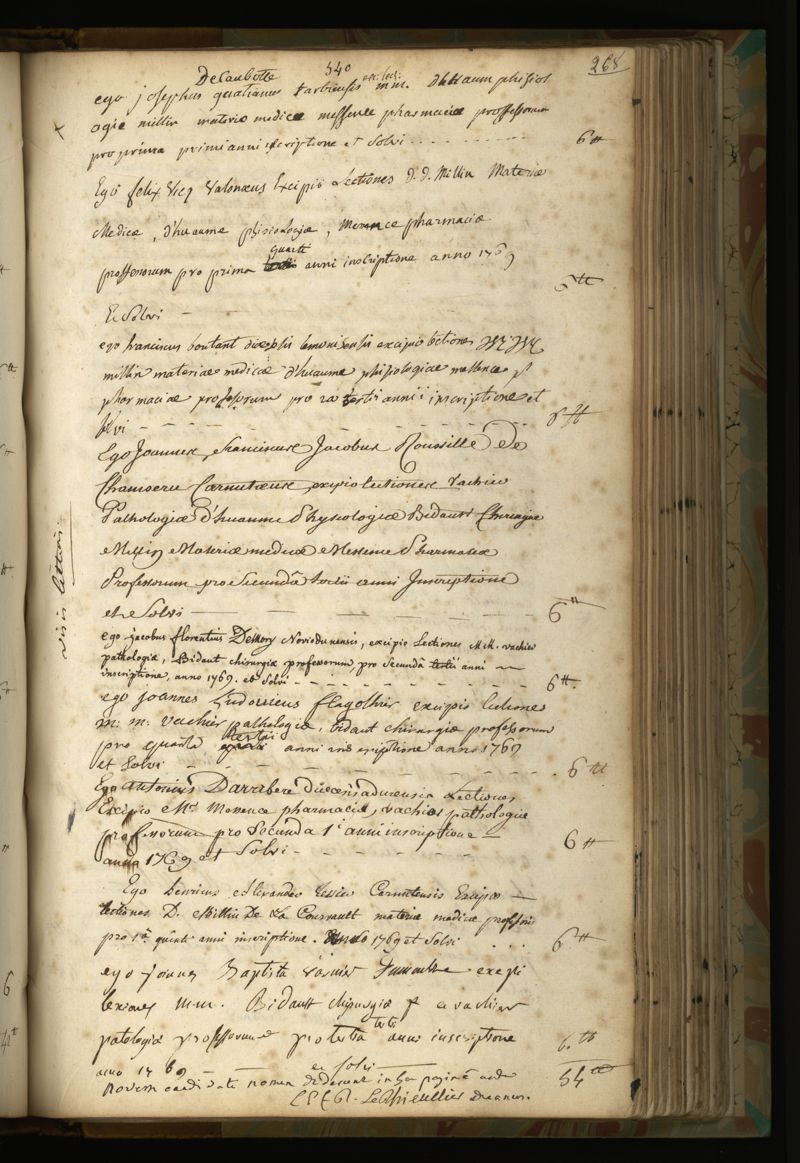 540
268
De Caubotte
ego josephus gratianus tarbiensis exc. lect. mm. d'huaum phisiol
ogiæ millin materiæ medicæ messence pharmaciæ professorum
pro prima primi anni inscriptione et solvi 6 ₶
Ego felix Vicq Valonæus Excipio Lectiones d. d. Millin Materiæ
Medicæ, d'huaume phisiologiæ, Messence pharmaciæ
professorum pro prima quarti anni inscriptione anno 1769
Et Solvi 6 ₶
ego franciscus boutant lemovisensis excipio lectiones
millin materiae medicæ d'huaume phisiologicæ messence
pharmaciae professorum pro 2a tertii anni inscriptione et
solvi 6 ₶
Ego Joannes Franciscus Jacobus Roussille De
Chamseru Carnutæus, excipio lectiones Vachier
Pathologiæ d'huaume Physiologiæ Bidault Chirurgiæ
Millin Materiæ medicæ Messence Pharmaciæ
Professorum pro Secundâ tertii anni Inscriptione
et Solvi 6 ₶
ego jacobus florentius Demory Noviodunensis, excipio Lectiones M.M. vachier
pathologiæ, Bidaut chirurgiæ professorum pro Secundâ tertii anni
inscriptione, anno 1769. et Solvi 6 ₶
ego joannes Ludovicus excipio lectiones
m: m: vachier pathologiæ, bidaut chirurgiæ professorum
pro quarta tertii anni inscriptione anno 1769
et Solvi 6 ₶
Ego antonius Darribere Lectiones
Excipio Mrs Messence pharmaciæ, vachier pathologiæ
professorum pro Secunda 1i anni inscriptione
anno 1769 et Solvi 6 ₶
Ego henricus Alexander Tessier Carnutensis Excipio
lectiones D. Millin De La Courvault materiæ medicæ professoris
pro 1a quinti anni inscriptione. anno 1769 et Solvi 6 ₶
ego joannes Baptista excepi
lexiones m.m. Bidault chirurgiæ et vachier
patologiæ professorum pro tertia tertii anni inscriptione
anno 1769 et solvi 6 ₶
Novem candidati nomen dederunt in hac paginâ 54 ₶
Le Thieullier Decanus.